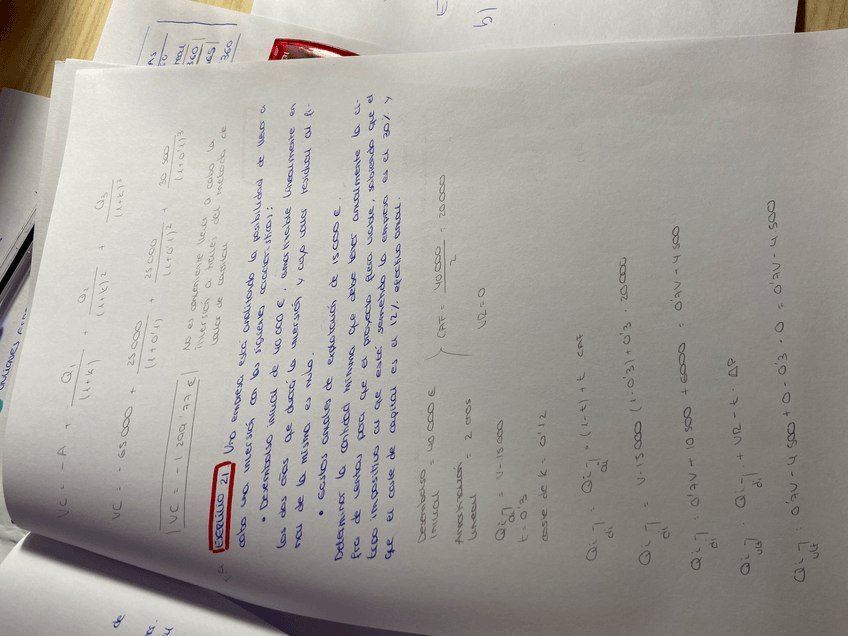 VC = - A + Q1/(1+k) + Q2/(1+k)² + Q3/(1+k)³
VC = - 65 000 + 25 000/(1+0'1) + 25 000/(1+0'1)² + 30 500/(1+0'1)³
VC = - 1 299'77 € No es conveniente llevar a cabo la
inversión a través del método de
valor de capital
EJERCICIO 21 Una empresa está analizando la posibilidad de llevar a
cabo una inversión con las siguientes características:
• Desembolso inicial de 40 000 €, amortizable linealmente en
los dos años que durará la inversión y cuyo valor residual al fi-
nal de la misma es nulo.
• Gastos anuales de explotación de 15 000 €.
Determinar la cantidad mínima que debe tener anualmente la ci-
fra de ventas para que el proyecto fuera viable, sabiendo que el
tipo impositivo al que está sometido la empresa es el 30% y
que el coste de capital es el 12% efectivo anual.
Desembolso = 40 000 €
inicial
CAF = 40 000/2 = 20 000
Amortización = 2 años
lineal
VR = 0
Qi¬ = V - 15 000
ai
t = 0'3
coste de k = 0'12
Qi¬ = Qi¬ · (1-t) + t · CAF
di ai
Qi¬ = V - 15 000 (1-0'3) + 0'3 · 20 000
di
Qi¬ : 0'7V - 10 500 + 6000 = 0'7V - 4 500
di
Qi¬ : Qi¬ + VR - t · ΔP
ult di
Qi¬ : 0'7V - 4 500 + 0 - 0'3 · 0 = 0'7V - 4 500
ult
b)
360